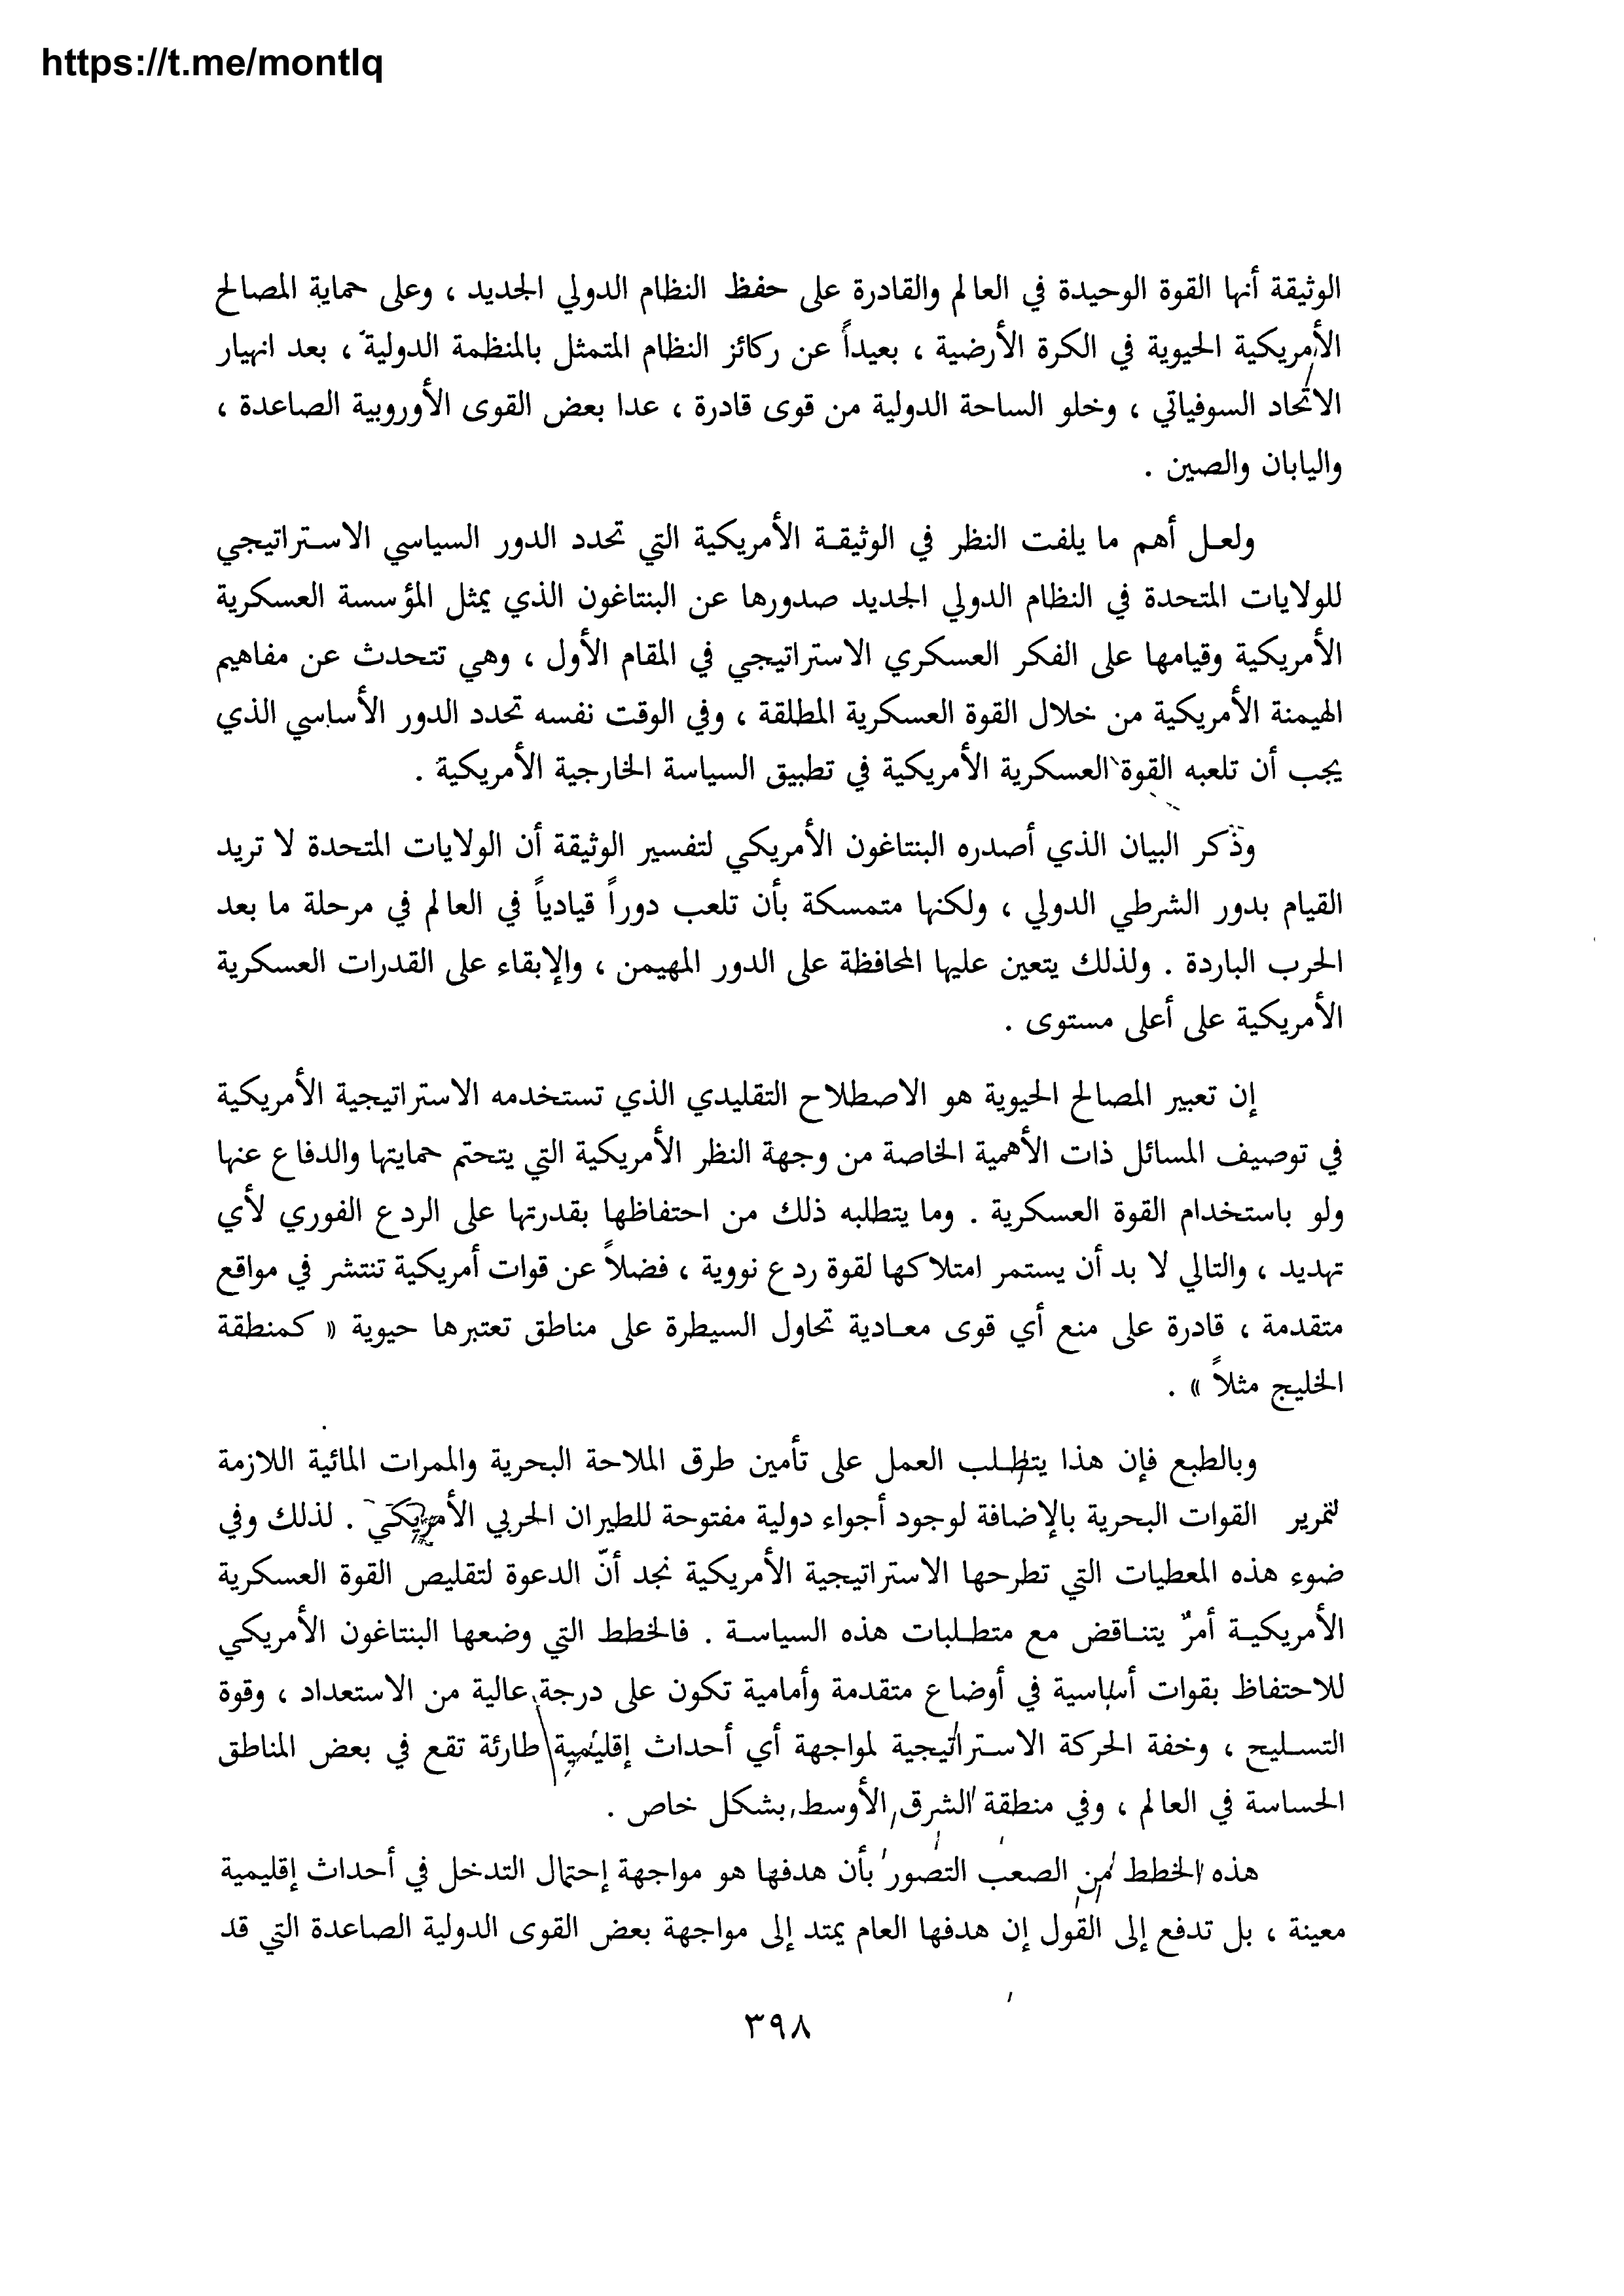 https://t.me/montlq
الوثيقة أنها القوة الوحيدة في العالم والقادرة على حفظ النظام الدولي الجديد ، وعلى حماية المصالح
الأمريكية الحيوية في الكرة الأرضية ، بعيداً عن ركائز النظام المتمثل بالمنظمة الدولية ، بعد انهيار
الاتحاد السوفياتي ، وخلو الساحة الدولية من قوى قادرة ، عدا بعض القوى الأوروبية الصاعدة ،
واليابان والصين .
ولعل أهم ما يلفت النظر في الوثيقة الأمريكية التي تحدد الدور السياسي الاستراتيجي
للولايات المتحدة في النظام الدولي الجديد صدورها عن البنتاغون الذي يمثل المؤسسة العسكرية
الأمريكية وقيامها على الفكر العسكري الاستراتيجي في المقام الأول ، وهي تتحدث عن مفاهيم
الهيمنة الأمريكية من خلال القوة العسكرية المطلقة ، وفي الوقت نفسه تحدد الدور الأساسي الذي
يجب أن تلعبه القوة العسكرية الأمريكية في تطبيق السياسة الخارجية الأمريكية .
وذكر البيان الذي أصدره البنتاغون الأمريكي لتفسير الوثيقة أن الولايات المتحدة لا تريد
القيام بدور الشرطي الدولي ، ولكنها متمسكة بأن تلعب دوراً قيادياً في العالم في مرحلة ما بعد
الحرب الباردة . ولذلك يتعين عليها المحافظة على الدور المهيمن ، والإبقاء على القدرات العسكرية
الأمريكية على أعلى مستوى .
إن تعبير المصالح الحيوية هو الاصطلاح التقليدي الذي تستخدمه الاستراتيجية الأمريكية
في توصيف المسائل ذات الأهمية الخاصة من وجهة النظر الأمريكية التي يتحتم حمايتها والدفاع عنها
ولو باستخدام القوة العسكرية . وما يتطلبه ذلك من احتفاظها بقدرتها على الردع الفوري لأي
تهديد ، والتالي لا بد أن يستمر امتلاكها لقوة ردع نووية ، فضلاً عن قوات أمريكية تنتشر في مواقع
متقدمة ، قادرة على منع أي قوى معادية تحاول السيطرة على مناطق تعتبرها حيوية « كمنطقة
الخليج مثلاً » .
وبالطبع فإن هذا يتطلب العمل على تأمين طرق الملاحة البحرية والممرات المائية اللازمة
لتمرير القوات البحرية بالإضافة لوجود أجواء دولية مفتوحة للطيران الحربي الأمريكي . لذلك وفي
ضوء هذه المعطيات التي تطرحها الاستراتيجية الأمريكية نجد أنّ الدعوة لتقليص القوة العسكرية
الأمريكية أمرٌ يتناقض مع متطلبات هذه السياسة . فالخطط التي وضعها البنتاغون الأمريكي
للاحتفاظ بقوات أساسية في أوضاع متقدمة وأمامية تكون على درجة عالية من الاستعداد ، وقوة
التسليح ، وخفة الحركة الاستراتيجية لمواجهة أي أحداث إقليمية طارئة تقع في بعض المناطق
الحساسة في العالم ، وفي منطقة الشرق الأوسط بشكل خاص .
هذه الخطط من الصعب التصور بأن هدفها هو مواجهة إحتمال التدخل في أحداث إقليمية
معينة ، بل تدفع إلى القول إن هدفها العام يمتد إلى مواجهة بعض القوى الدولية الصاعدة التي قد
٣٩٨